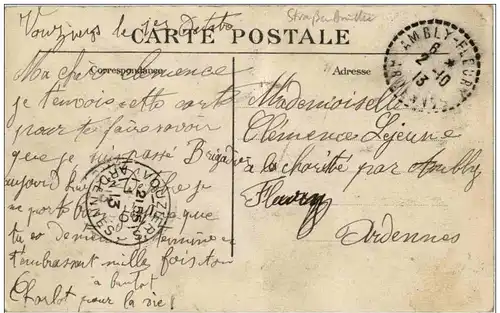 Vouziers le 1er Octobre
CARTE POSTALE
Correspondance
Adresse
Ma chère Clemence
je t'envois cette carte
pour te faire savoir
que je suis passé Brigadier
aujourd'hui
je
me porte bien que
tu es de même termine en
t'embrassant mille fois ton
à bientot
Charlot pour la vie!
Mademoiselle
Clémence Lejeune
a la charité par Ambly
Fleury
Ardennes
AMBLY-FLEURY
6 *
2 -10
13
VOUZIERS
ARDENNES
13